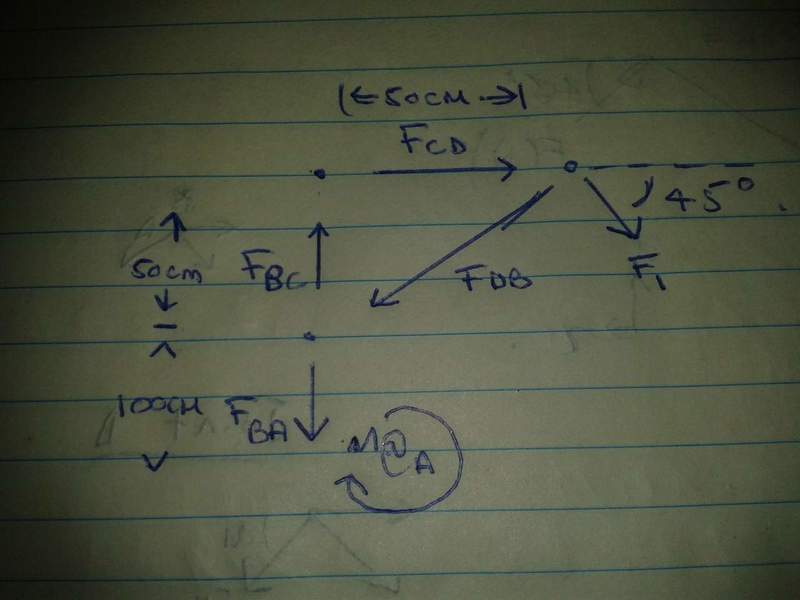 50cm
FCD
45°
50cm
FBC
FDB
F1
100cm
FBA
M@A